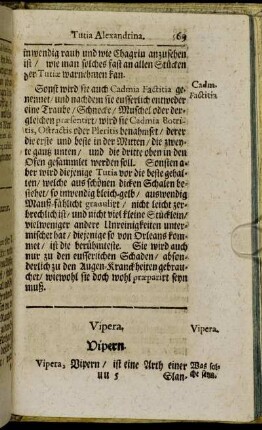 Tutia Alexandrina. 169
inwendig rauh und wie Chagrin anzusehen
ist / wie man solches fast an allen Stücken
der Tutiæ warnehmen kan.
Sonst wird sie auch Cadmia Factitia ge-
nennet / und nachdem sie eusserlich entweder
eine Traube / Schnecke / Muschel oder der-
gleichen præsentirt / wird sie Cadmia Botri-
tis, Ostractis oder Pleritis benahmset / derer
die erste und beste in der Mitten / die zwey-
te gantz unten / und die dritte oben in den
Ofen gesammlet werden soll. Sonsten a-
ber wird diejenige Tutia vor die beste gehal-
ten / welche aus schönen dicken Schalen be-
stehet / so inwendig bleich-gelb / auswendig
Mauß-fählicht granulirt / nicht leicht zer-
brechlich ist / und nicht viel kleine Stücklein /
vielweniger andere Unreinigkeiten unter-
mischet hat / diejenige so von Orleans kom-
met / ist die berühmteste. Sie wird auch
nur zu den eusserlichen Schäden / abson-
derlich zu den Augen-Kranckheiten gebrau-
chet / wiewohl sie doch wohl præparirt seyn
muß.
Cadm.
Factitia
Vipera.
Vipern.
Vipera.
Vipera, Vipern / ist eine Arth einer
Was sol-
che seyn.
uu 5 Slan-